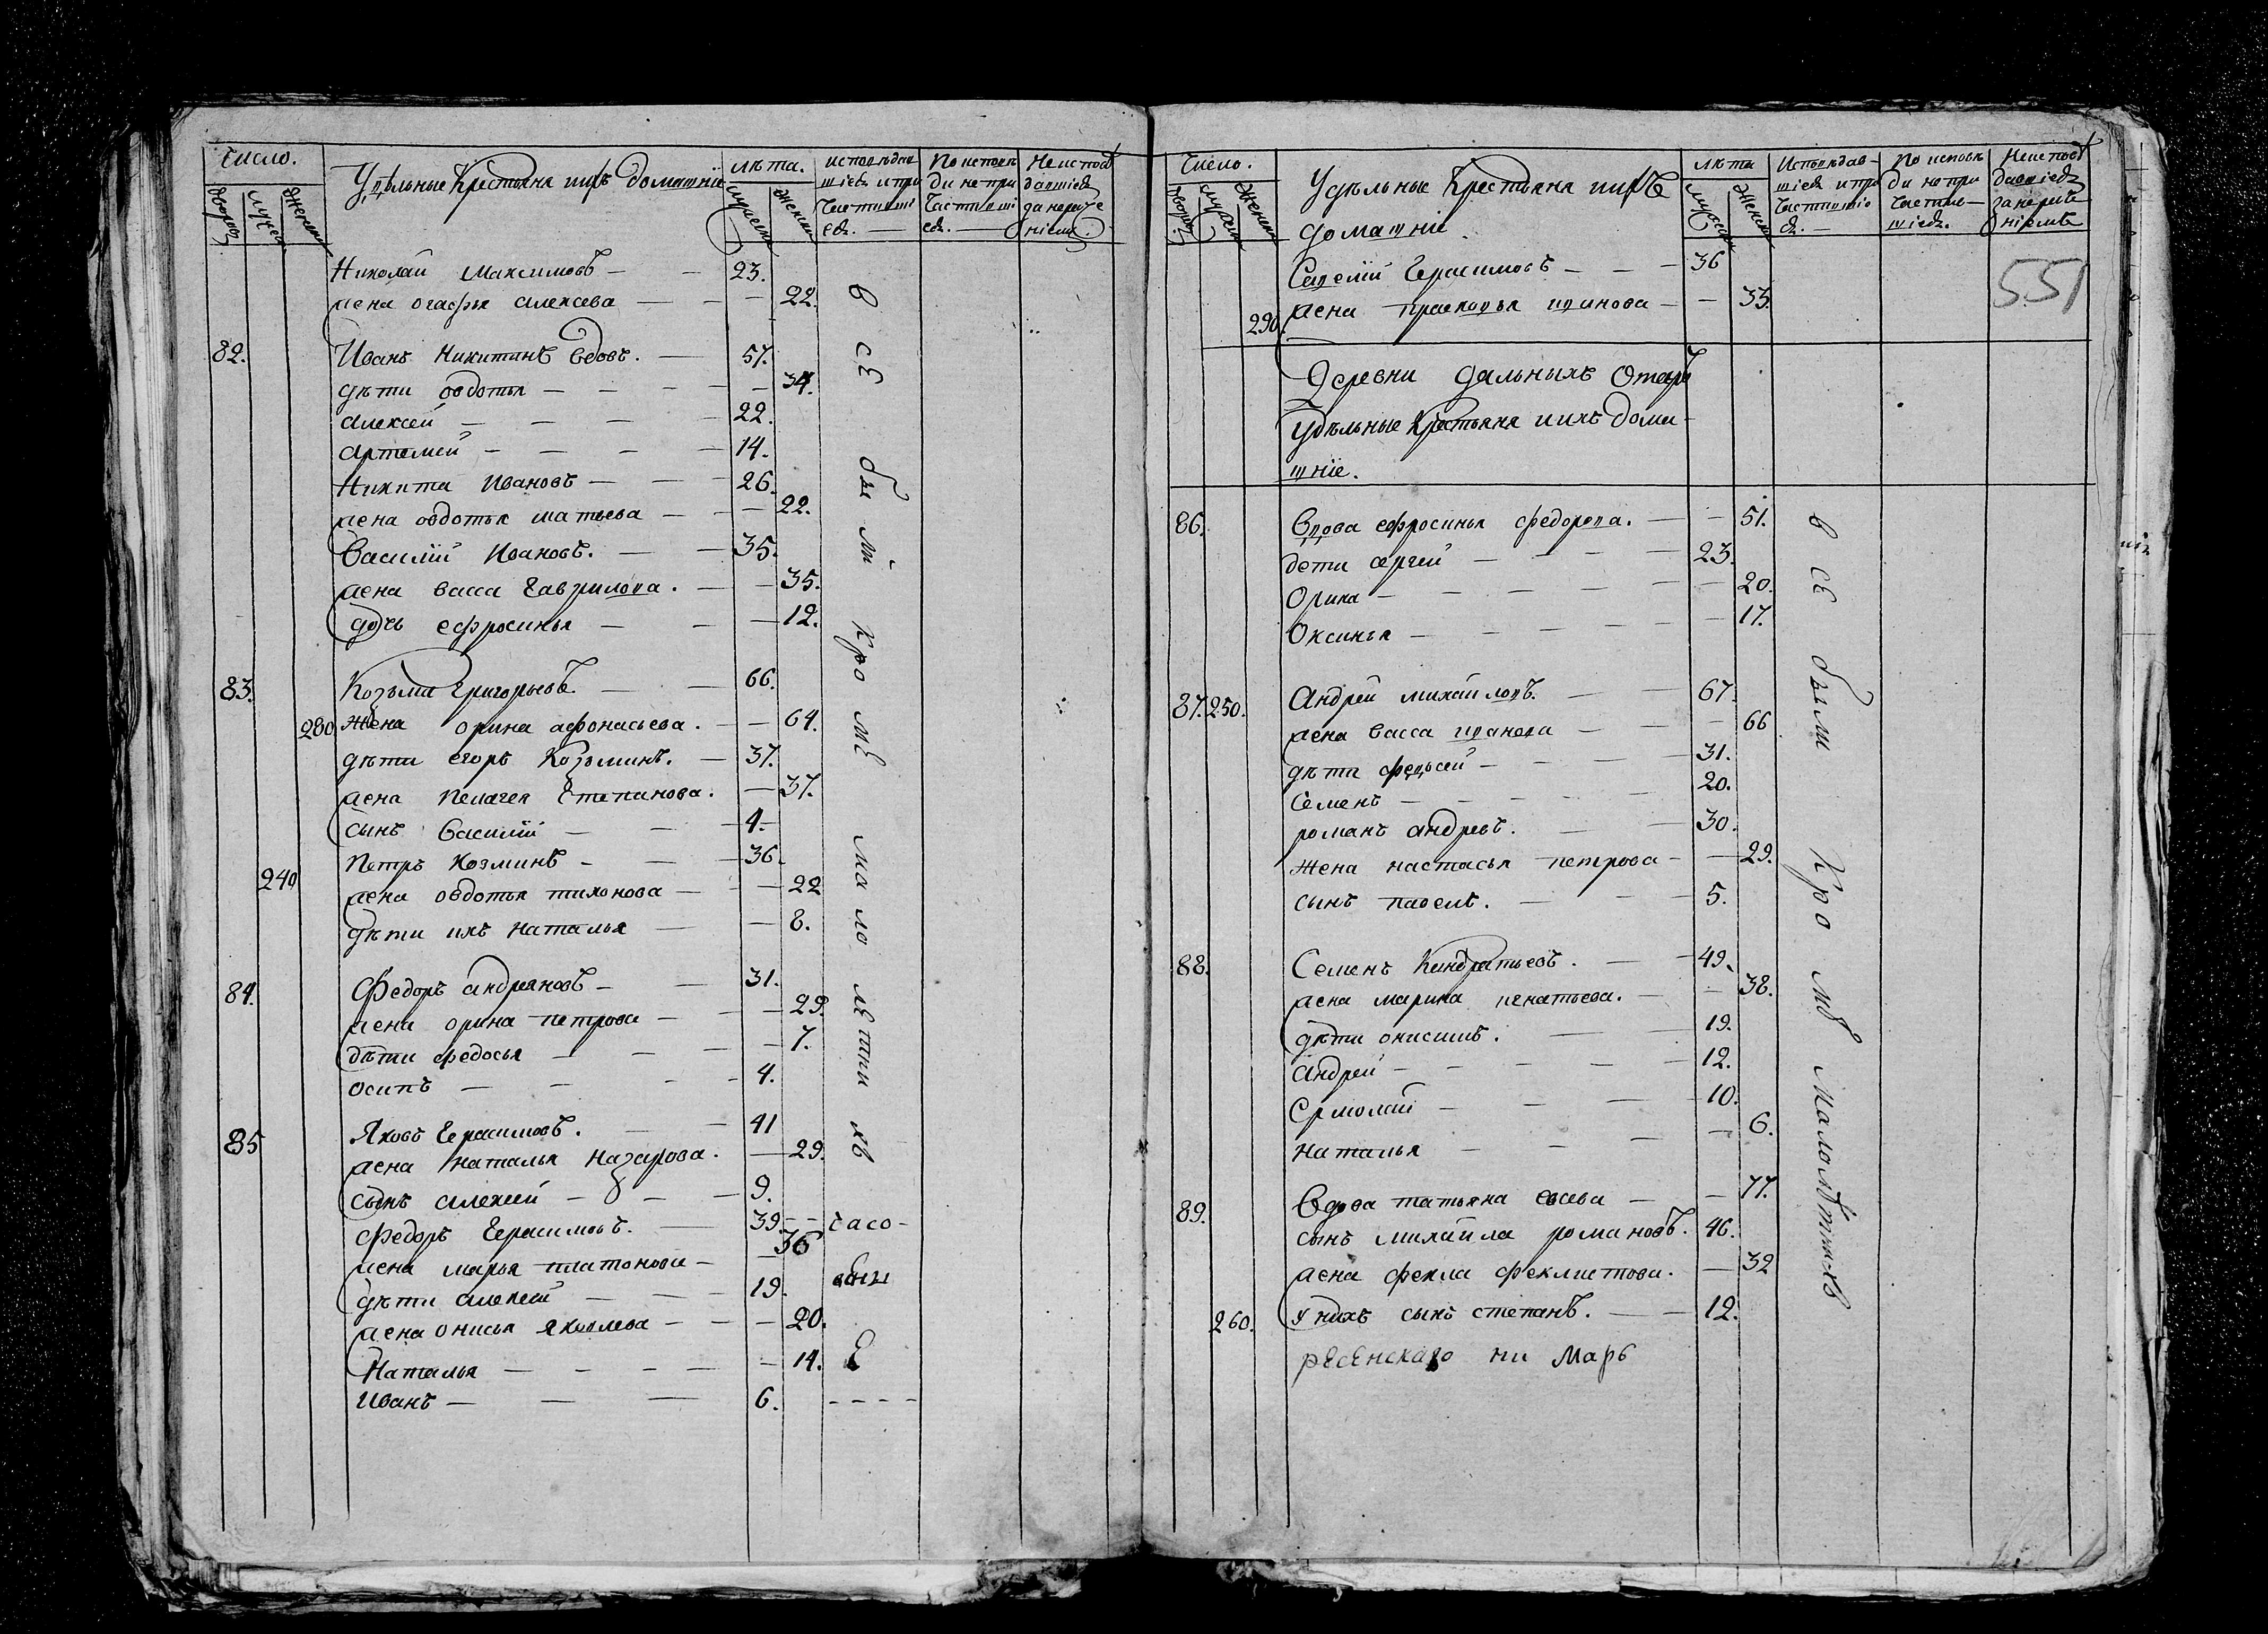 Число.
Удѣльные Крестьяня ихъ домашнїе
лѣта.
исповѣдав
шїесѧ и при
частивші
есѧ. —
По исповѣ
ди не при
частивші
есѧ. —
Не испов
давшїесѧ
за нераче
нїемъ
дворовъ
мужес
женска
мужеска
женска
Николай Максимовъ — — 23.
жена огафья алексева — — — 22.
82. Иванъ Никитинъ вдовъ. — 57.
дѣти овдотья — — — — — 34.
алексей — — — — 22.
артемей — — — — 14.
Никита Ивановъ — — — 26.
жена овдотья матвева — — — 22.
Василїй Ивановъ. — — 35.
жена васса Гаврилова. — — 35.
дочь ефросинья — — — 12.
83. Козьма Григорьевъ — — 66.
280 жена орина афонасьева. — — 64.
дѣти егоръ Козьминъ. — 37.
жена пелагея Степанова. — 37.
сынъ Василїй — — — 4.
Петръ Козминъ — — — 36.
240 жена овдотья тихонова — — — 22
дѣти ихъ наталья — — 8.
84. Федоръ андреяновъ — — 31.
жена орина петрова — — — 29.
дѣти федосья — — — — 7.
осипъ — — — — 4.
85 Яковъ Герасимовъ. — — 41
жена наталья назарова. — 29.
сынъ алексей — — — 9.
федоръ Герасимовъ. — 39.
жена марья платонова — — 36
дѣти алексей — — — 19.
жена онисья яковлева — — — 20.
Наталья — — — — — 14.
Иванъ — — — 6.
все были Кромѣ малолѣтнихъ
часо-
Число.
дворовъ
мужеска
женска
Удѣльные Крестьяня ихъ
домашнїе.
лѣта
мужеска
женска
Исповѣдав-
шїесѧ и при
частившїе
сѧ. —
По исповѣ
ди не при
частив—
шїесѧ.
Неисповѣ
давшїесѧ
за нераче
нїемъ
551
Савелїй Герасимовъ — — — 36
290. жена прасковья иванова — — 33.
Деревни дальныхъ Отаръ
удѣльные Крестьяня ихъ дома-
шнїе.
86. Вдова ефросинья федорова. — — 51.
дети сергей — — — — 23.
Орина — — — — — — 20.
Оксинья — — — — — — 17.
87. 250. Андрей михайловъ. — — 67.
жена васса иванова — — — 66
дѣти федосей — — — — 31.
Семенъ — — — — — 20.
романъ андревъ. — — 30.
жена настасья петрова — — 29.
сынъ павелъ. — — — 5.
88. Семенъ Кандратьевъ. — — 49.
жена марина игнатьева. — — 38.
дѣти онисимъ. — — 19.
андрей — — — — — 12.
Ермолай — — — — 10.
наталья — — — — 6.
89. Вдова татьяна евсева — — 77.
сынъ михайла романовъ. — 46.
жена фекла феклистова. — 32
260. у нихъ сынъ степанъ. — — 12.
все были Кромѣ Малолѣтнихъ